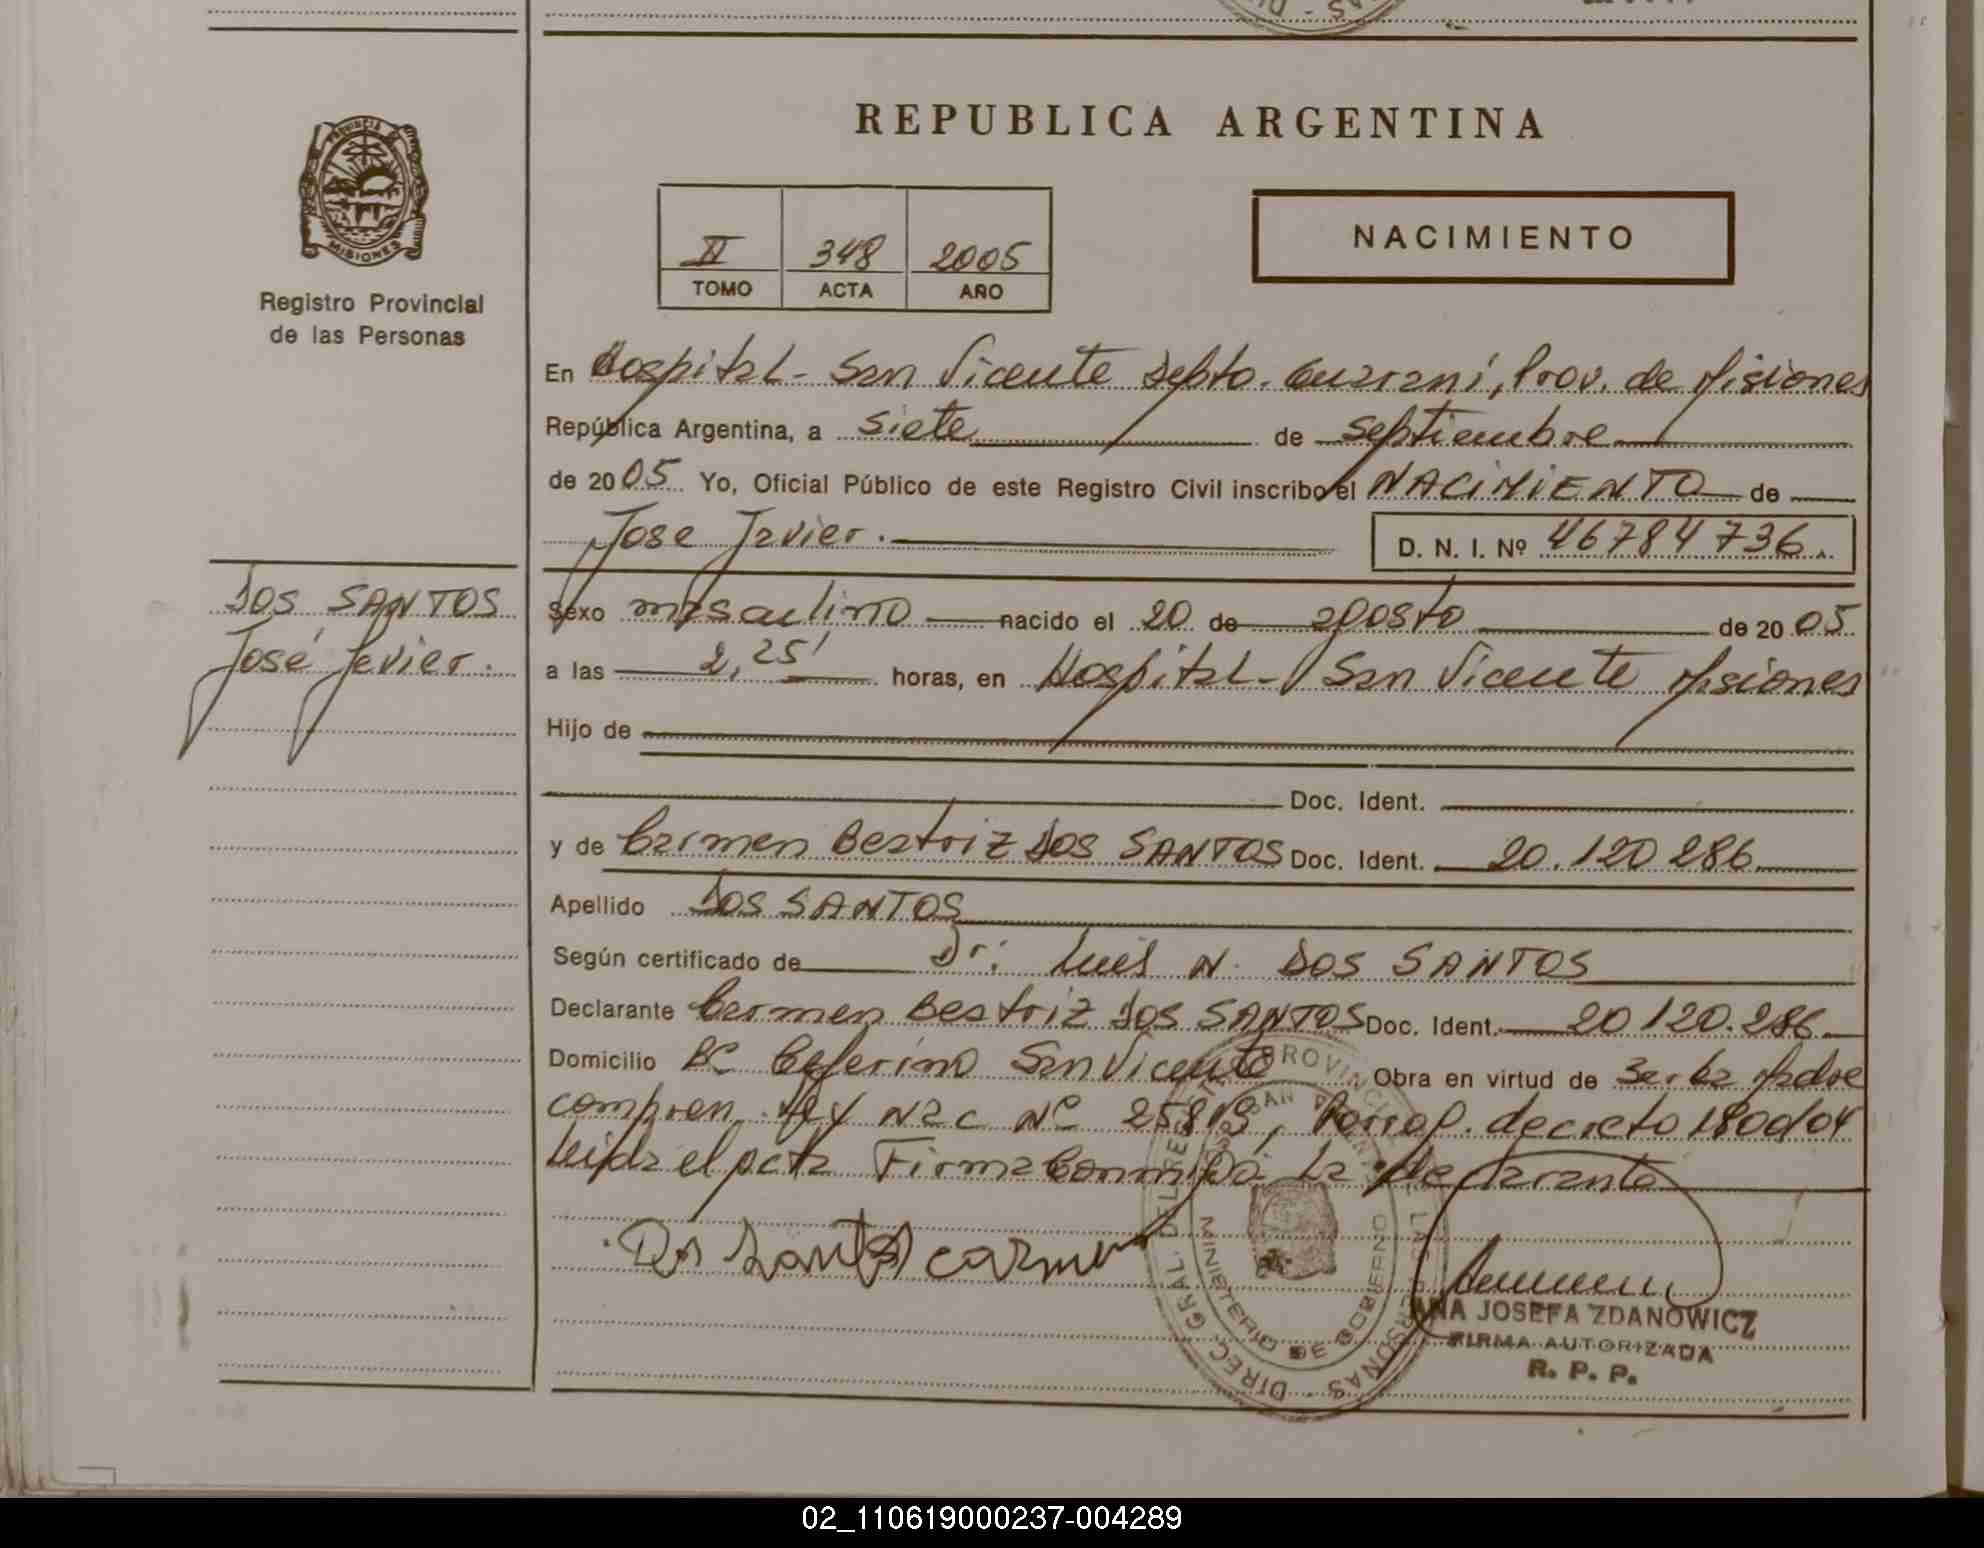 REPUBLICA ARGENTINA
PROVINCIA DE
MISIONES
Registro Provincial
de las Personas
II 348 2005
TOMO ACTA AÑO
NACIMIENTO
En Hospital - San Vicente Depto. Guaraní, Prov. de Misiones
República Argentina, a siete de septiembre
de 2005 Yo, Oficial Público de este Registro Civil inscribo el NACIMIENTO de
Jose Javier.
D. N. I. Nº 46784736.
DOS SANTOS
José Javier.
Sexo masculino nacido el 20 de agosto de 2005.
a las 2,25' horas, en Hospital - San Vicente Misiones
Hijo de
Doc. Ident.
y de Carmen Beatriz DOS SANTOS Doc. Ident. 20.120 286
Apellido DOS SANTOS
Según certificado de Dr: Luis N. DOS SANTOS
Declarante Carmen Beatriz DOS SANTOS Doc. Ident. 20 120.286
Domicilio Bº Ceferino San Vicente Obra en virtud de ser la madre
compren. Ley Nac Nº 25819, decreto 1800/04
Leida el acta Firma Conmigo La declarante
Dos Santos Carmen
DIREC. GRAL. DEL REG. PROVINCIAL DE LAS PERSONAS
MINISTERIO DE GOBIERNO
ANA JOSEFA ZDANOWICZ
FIRMA AUTORIZADA
R. P. P.
02_110619000237-004289